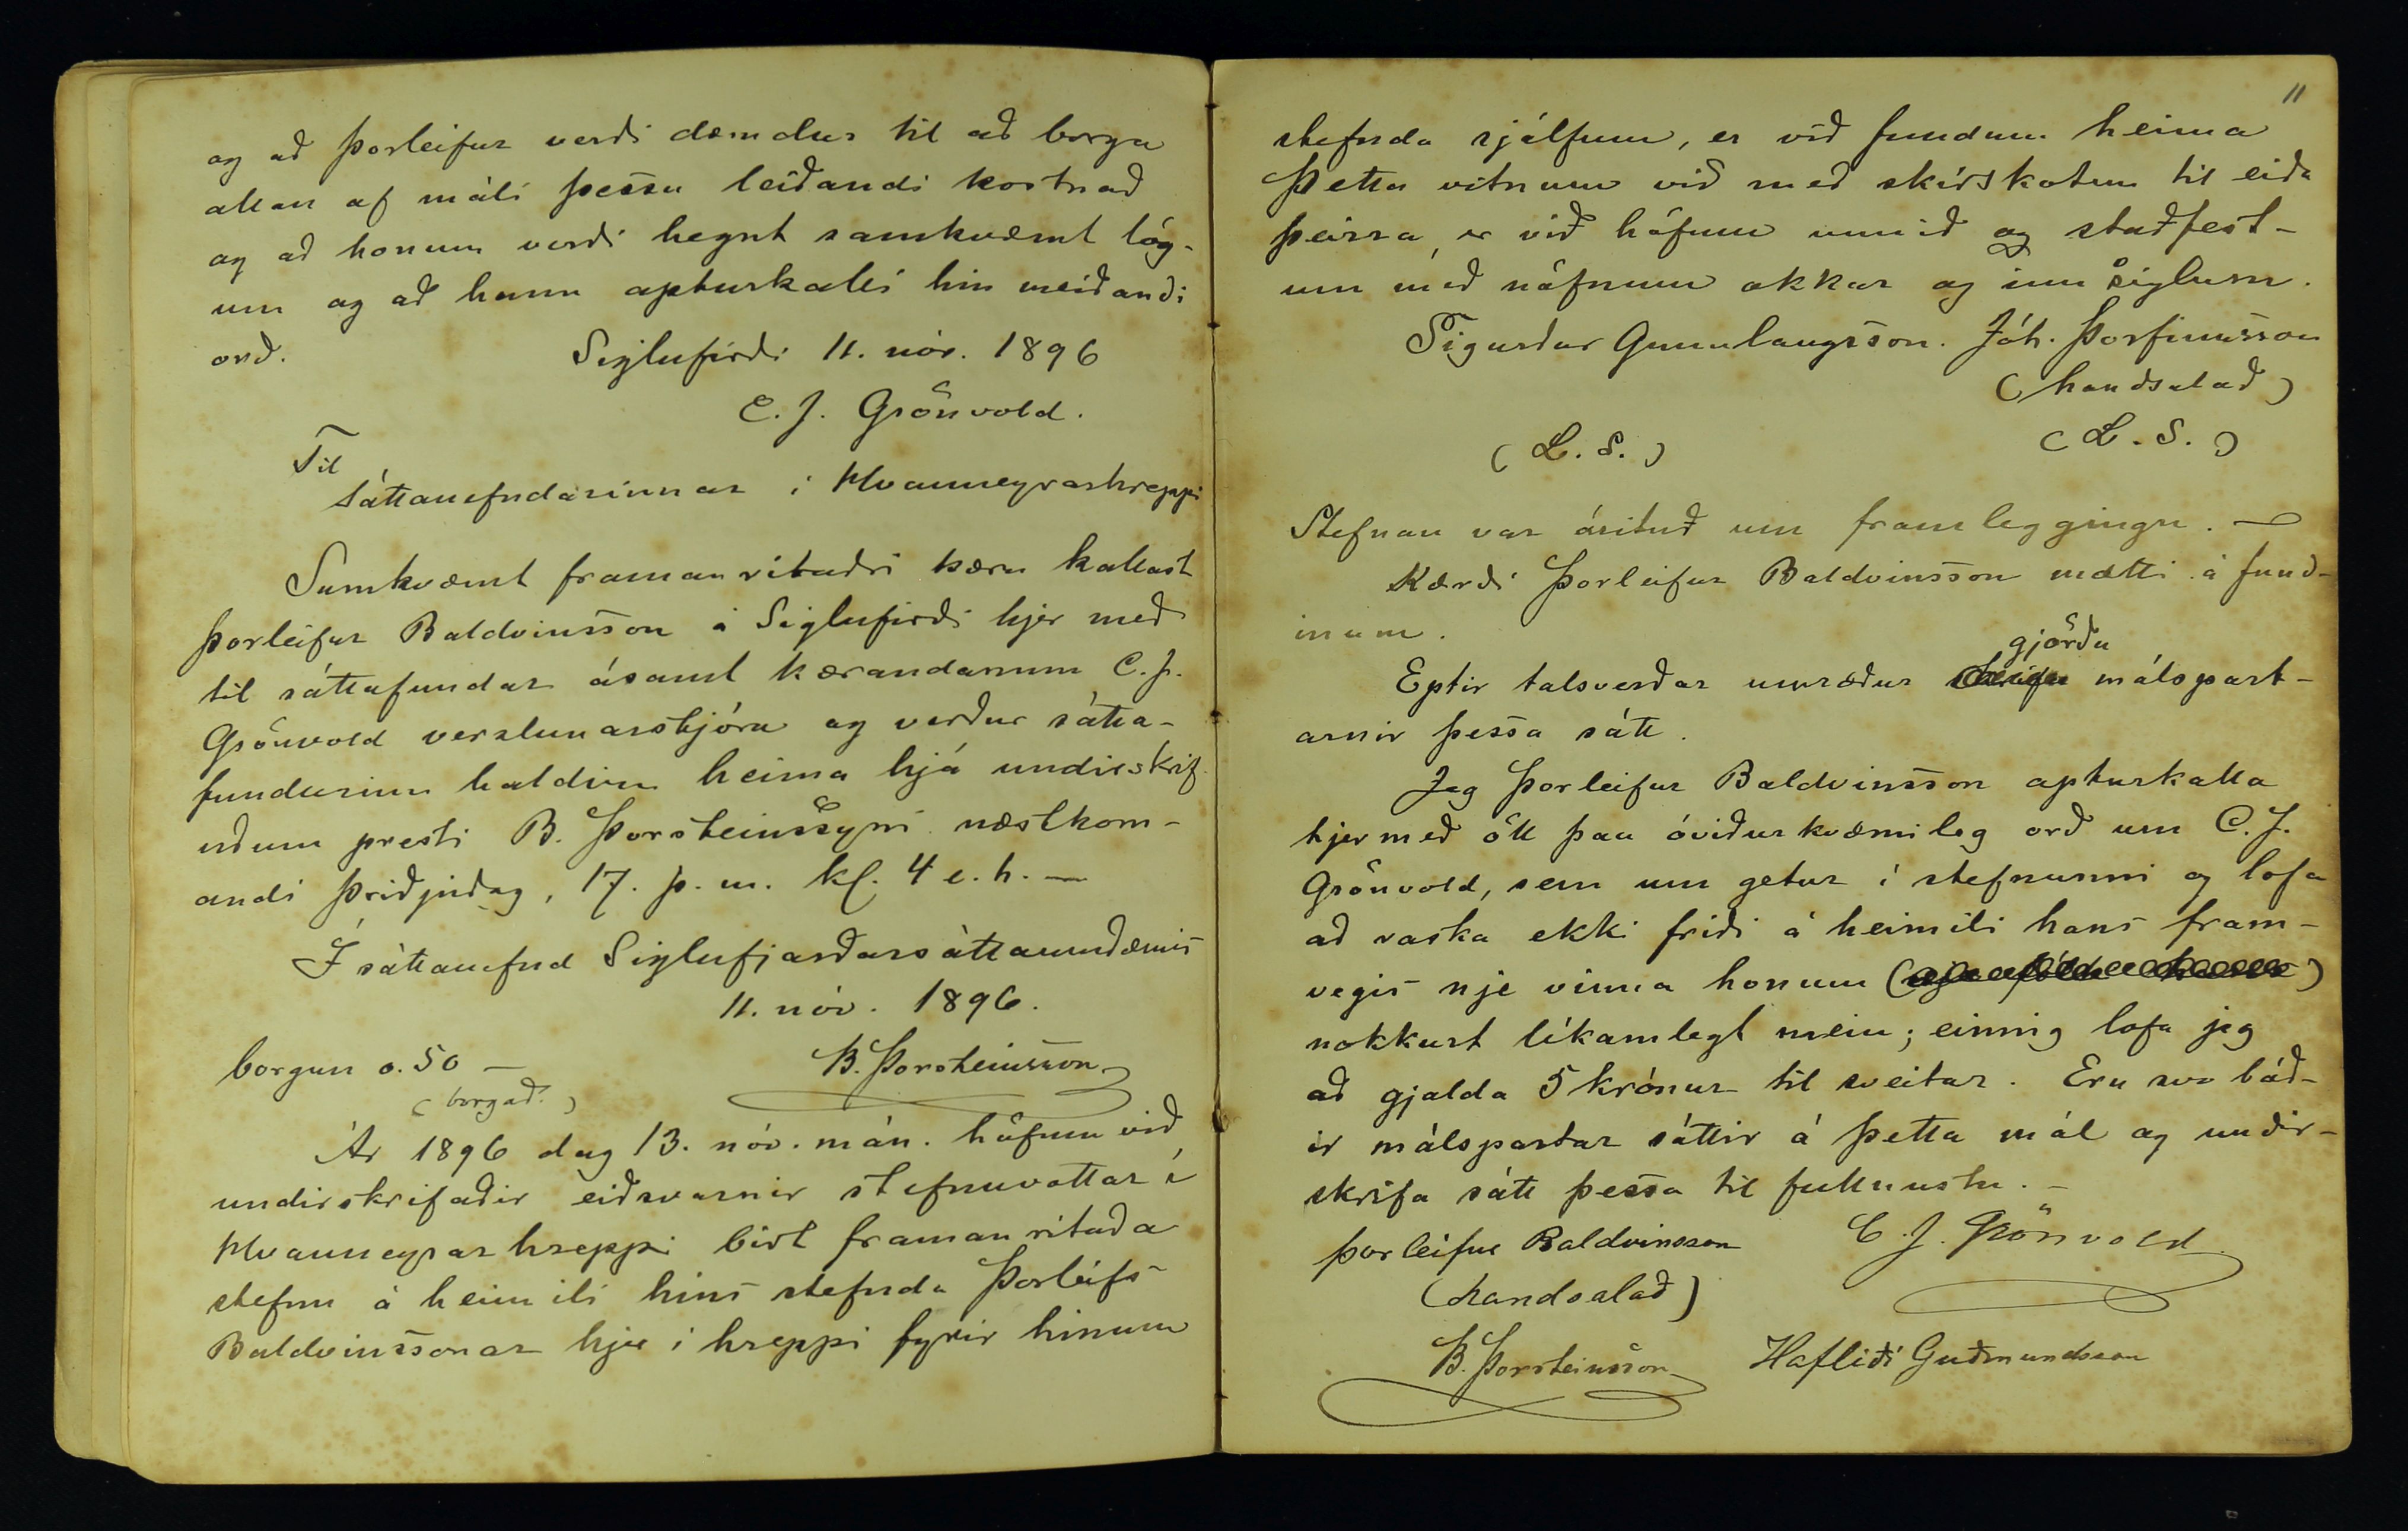 og að Þorleifur verði dæmdur til að borga
allan af máli þessu leiðandi kostnað
og að honum verði hegnt samkvæmt lög-
um og að hann apturkalli hin meiðandi
orð. Siglufirði 11. nóv. 1896
C. J. Grönvold.
Til
sáttanefndarinnar í Hvanneyrarhreppi
Samkvæmt framanritaðri kæru kallast
Þorleifur Baldvinsson á Siglufirði hjer með
til sáttafundar ásamt kærandanum C. J.
Grönvold verzlunarstjóra og verður sátta-
fundurinn haldinn heima hjá undirskrif-
uðum presti B. Þorsteinssyni næstkom-
andi þriðjudag, 17. þ. m. kl. 4 e. h. —
Í sáttanefnd Siglufjarðarsáttaumdæmis
11. nóv. 1896.
borgun 0.50 — B. Þorsteinsson
(borgað.)
Ár 1896 dag 13. nóv. mán. höfum við
undirskrifaðir eiðsvarnir stefnuvottar í
Hvanneyrarhreppi birt framanritaða
stefnu á heimili hins stefnda Þorleifs
Baldvinssonar hjer í hreppi fyrir hinum
11
stefnda sjálfum, er við fundum heima
Þetta vitnum við með skírskotun til eiða
þeirra, er við höfum unnið og staðfest-
um með nöfnum okkar og innsiglum.
Sigurður Gunnlaugsson. Jóh. Þorfinnsson
(handsalað)
(L. S.) (L. S.)
Stefnan var árituð um framleggingu. —
Kærði Þorleifur Baldvinsson mætti á fund-
inum.
gjörðu
Eptir talsverðar umræður málspart-
arnir þessa sátt.
Jeg Þorleifur Baldvinsson apturkalla
hjer með öll þau óviðurkvæmileg orð um C. J.
Grönvold, sem um getur í stefnunni og lofa
að raska ekki friði á heimili hans fram-
vegis nje vinna honum ( )
nokkurt líkamlegt mein; einnig lofa jeg
að gjalda 5 krónur til sveitar. Eru svo báð-
ir málspartar sáttir á þetta mál og undir-
skrifa sátt þessa til fullnustu. —
Þorleifur Baldvinsson C. J. Grönvold
(handsalað)
B. Þorsteinsson Hafliði Guðmundsson